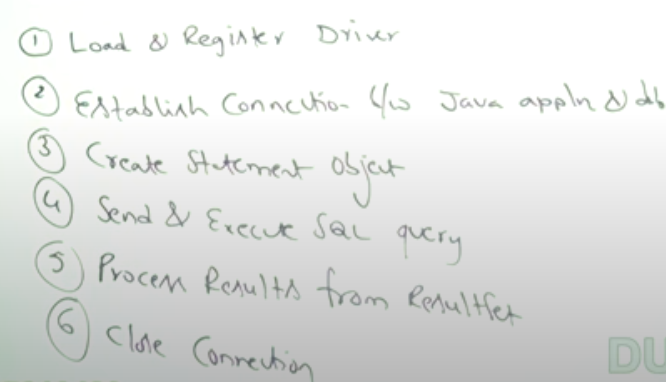 ① Load & Register Driver
② Establish Connection b/w Java appln & db
③ Create Statement object
④ Send & Execute SQL query
⑤ Process Results from ResultSet
⑥ Close Connection
DU